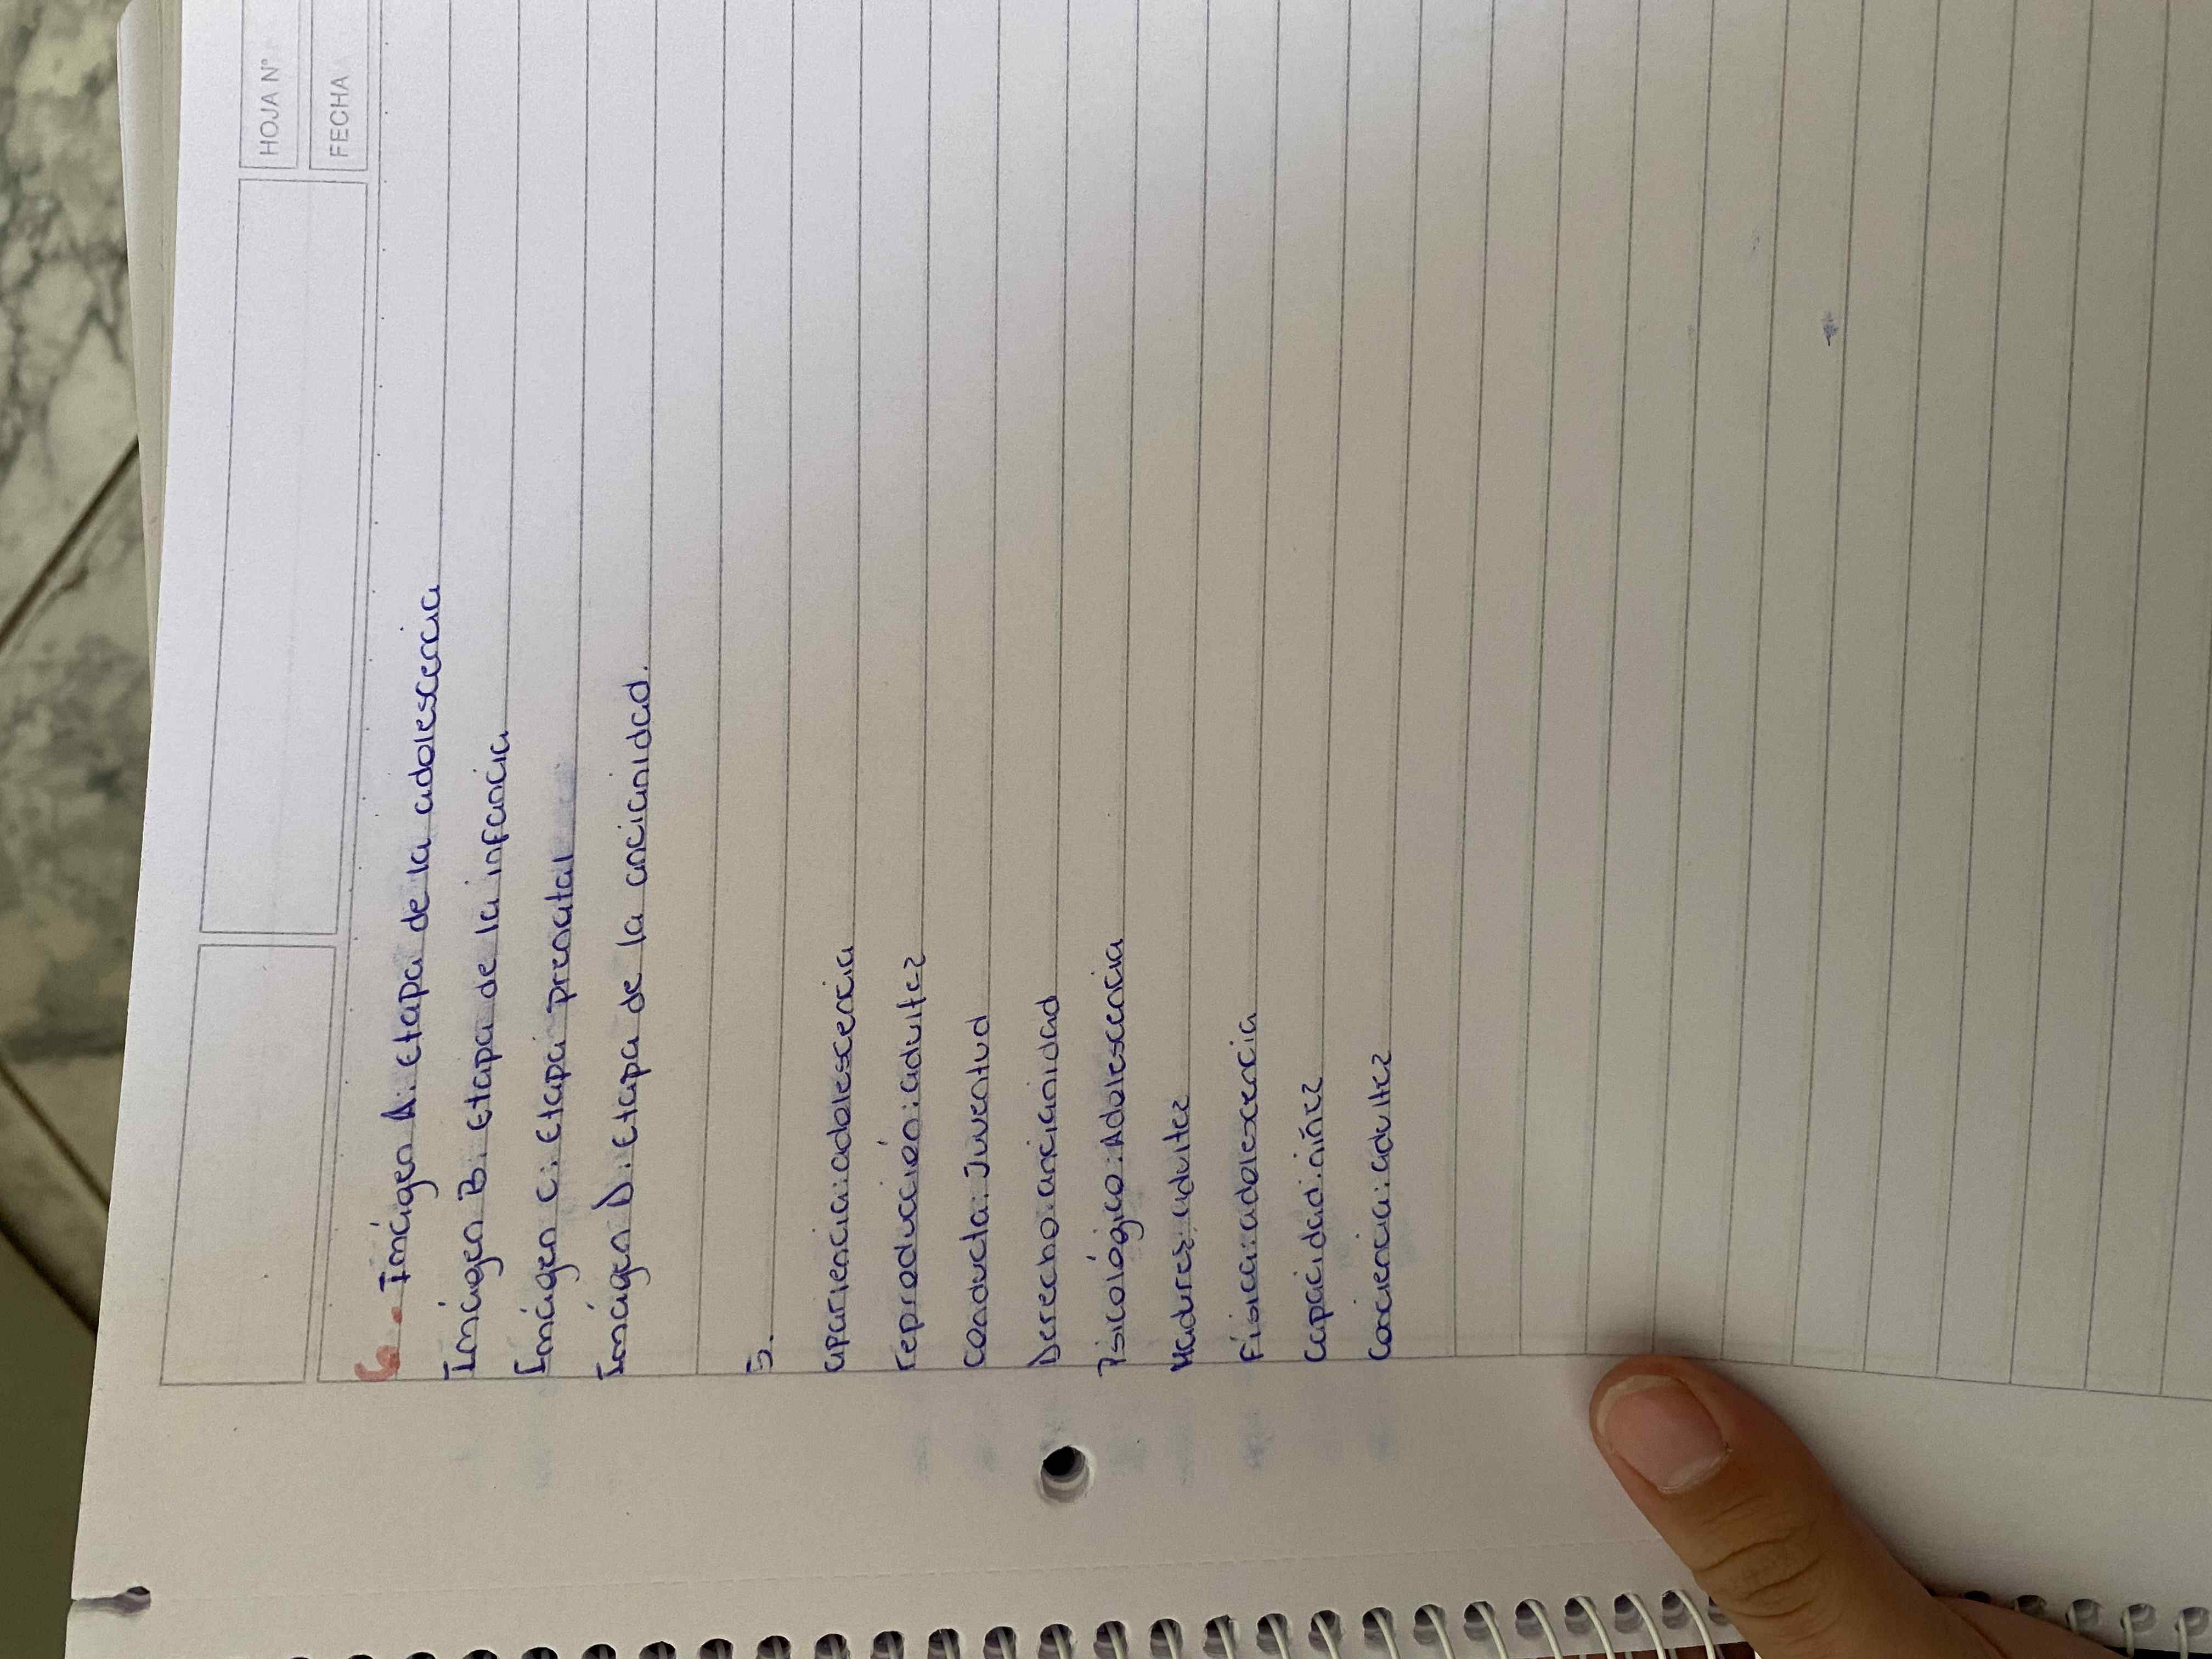 HOJA N°
FECHA
6.- Imágen A: Etapa de la adolescencia
Imágen B: Etapa de la infancia
Imágen C: Etapa prenatal
Imágen D: Etapa de la ancianidad.
5.
apariencia: adolescencia
reproducción: adultez
Conducta: Juventud
Derecho: ancianidad
Psicológico: Adolescencia
Madurez: adultez
Física: adolescencia
capacidad: niñez
conciencia: adultez